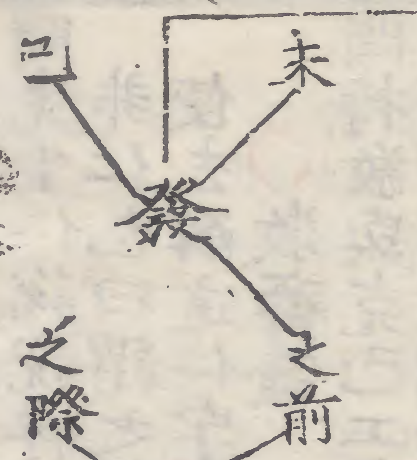 未
已
發
之前
之際